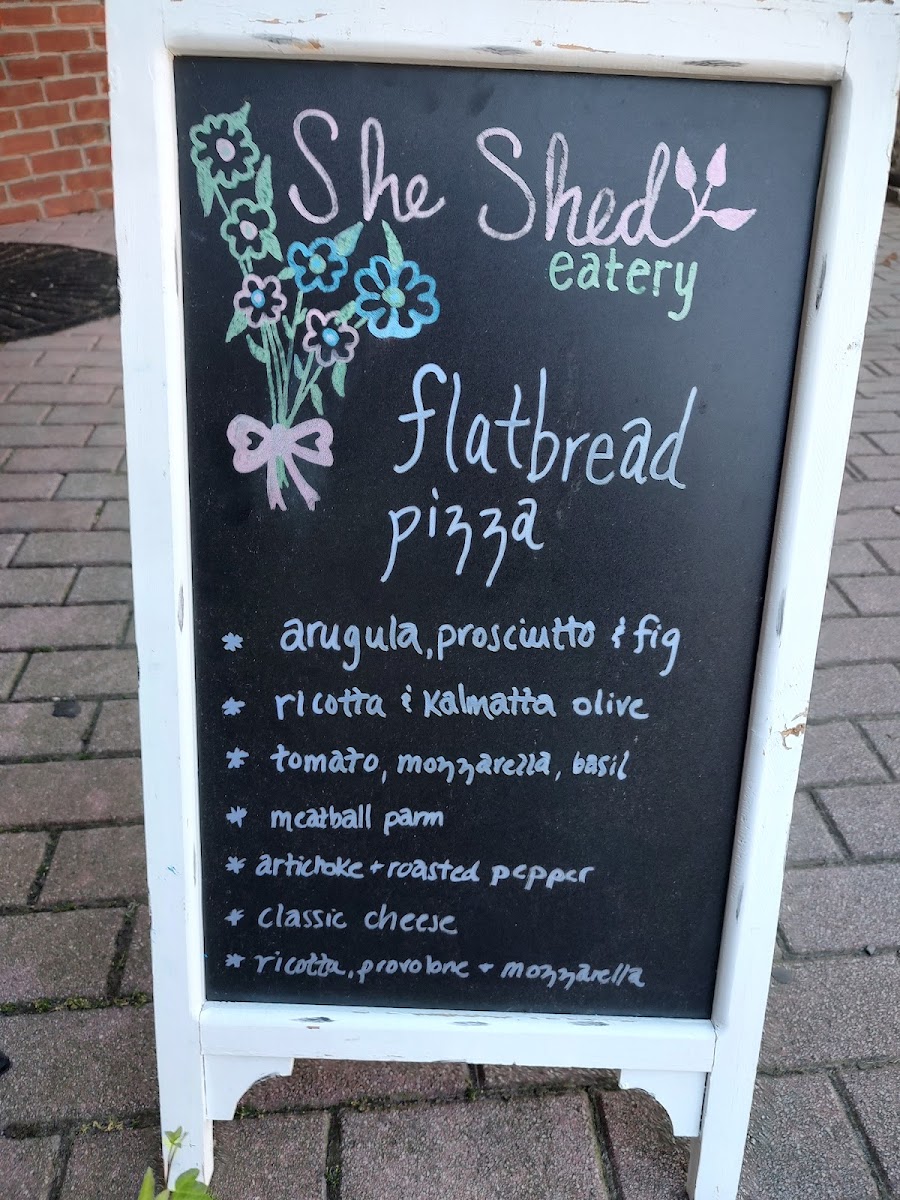 She Shed
eatery
flatbread
pizza
* arugula, prosciutto & fig
* ricotta & Kalmatta olive
* tomato, mozzarella, basil
* meatball parm
* artichoke + roasted pepper
* classic cheese
* ricotta, provolone + mozzarella